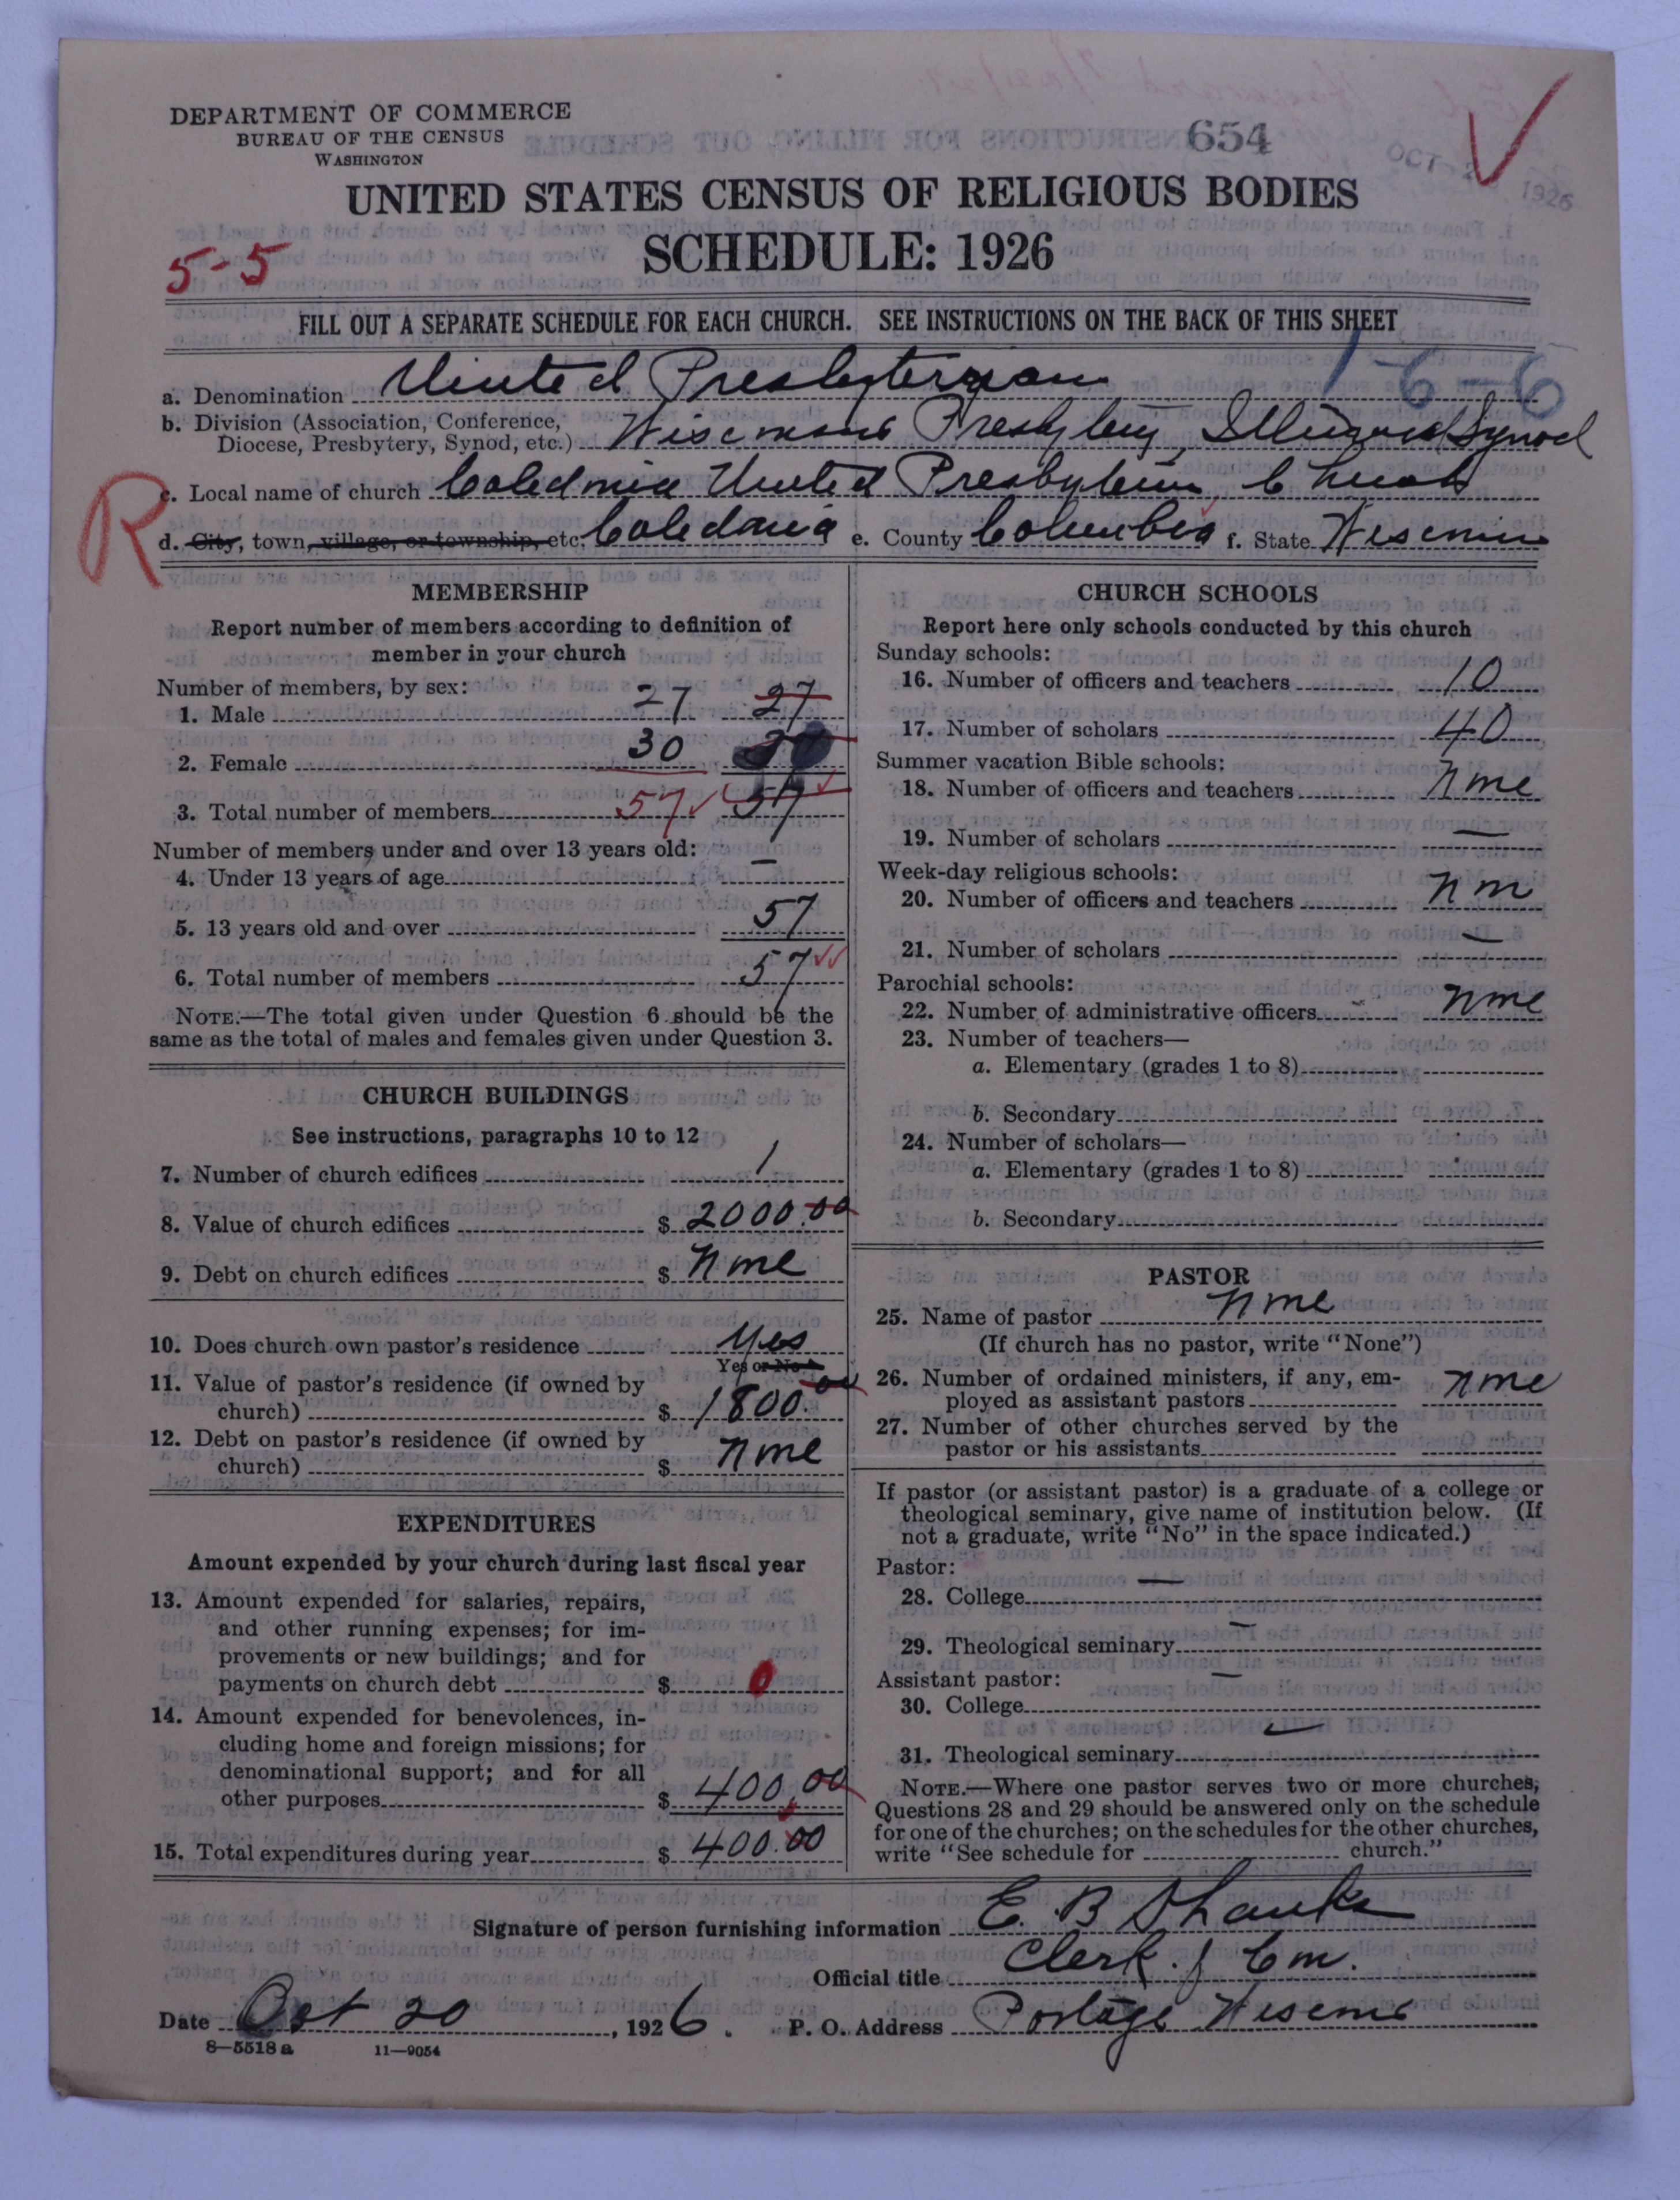 DEPARTMENT OF COMMERCE
BUREAU OF THE CENSUS
WASHINGTON
654
OCT 2 1926
UNITED STATES CENSUS OF RELIGIOUS BODIES
SCHEDULE: 1926
5-5
FILL OUT A SEPARATE SCHEDULE FOR EACH CHURCH. SEE INSTRUCTIONS ON THE BACK OF THIS SHEET
1-6-6
a. Denomination United Presbyterian
b. Division (Association, Conference,
Diocese, Presbytery, Synod, etc.) Wisconsin Presbytery, Illinois Synod
R
c. Local name of church Caledonia United Presbyterian Church
d. City, town, village, or township, etc. Caledonia e. County Columbia f. State Wisconsin
MEMBERSHIP
Report number of members according to definition of
member in your church
Number of members, by sex:
1. Male 27 27
2. Female 30 30
3. Total number of members 57 57
Number of members under and over 13 years old:
4. Under 13 years of age —
5. 13 years old and over 57
6. Total number of members 57
NOTE.—The total given under Question 6 should be the
same as the total of males and females given under Question 3.
CHURCH BUILDINGS
See instructions, paragraphs 10 to 12
7. Number of church edifices 1
8. Value of church edifices $ 2000.00
9. Debt on church edifices $ None
10. Does church own pastor's residence Yes
Yes or No
11. Value of pastor's residence (if owned by
church) $ 1800.00
12. Debt on pastor's residence (if owned by
church) $ None
EXPENDITURES
Amount expended by your church during last fiscal year
13. Amount expended for salaries, repairs,
and other running expenses; for im-
provements or new buildings; and for
payments on church debt $ 0
14. Amount expended for benevolences, in-
cluding home and foreign missions; for
denominational support; and for all
other purposes $ 400.00
15. Total expenditures during year $ 400.00
CHURCH SCHOOLS
Report here only schools conducted by this church
Sunday schools:
16. Number of officers and teachers 10
17. Number of scholars 40
Summer vacation Bible schools:
18. Number of officers and teachers None
19. Number of scholars —
Week-day religious schools:
20. Number of officers and teachers Non
21. Number of scholars —
Parochial schools:
22. Number of administrative officers None
23. Number of teachers—
a. Elementary (grades 1 to 8)
b. Secondary
24. Number of scholars—
a. Elementary (grades 1 to 8)
b. Secondary
PASTOR
25. Name of pastor None
(If church has no pastor, write "None")
26. Number of ordained ministers, if any, em-
ployed as assistant pastors None
27. Number of other churches served by the
pastor or his assistants
If pastor (or assistant pastor) is a graduate of a college or
theological seminary, give name of institution below. (If
not a graduate, write "No" in the space indicated.)
Pastor:
28. College —
29. Theological seminary —
Assistant pastor:
30. College —
31. Theological seminary —
NOTE.—Where one pastor serves two or more churches,
Questions 28 and 29 should be answered only on the schedule
for one of the churches; on the schedules for the other churches,
write "See schedule for church."
Signature of person furnishing information E. B Shanks
Official title Clerk of Con.
Date Oct 20, 1926. P. O. Address Portage Wisconsin
8—5518 a 11—9054